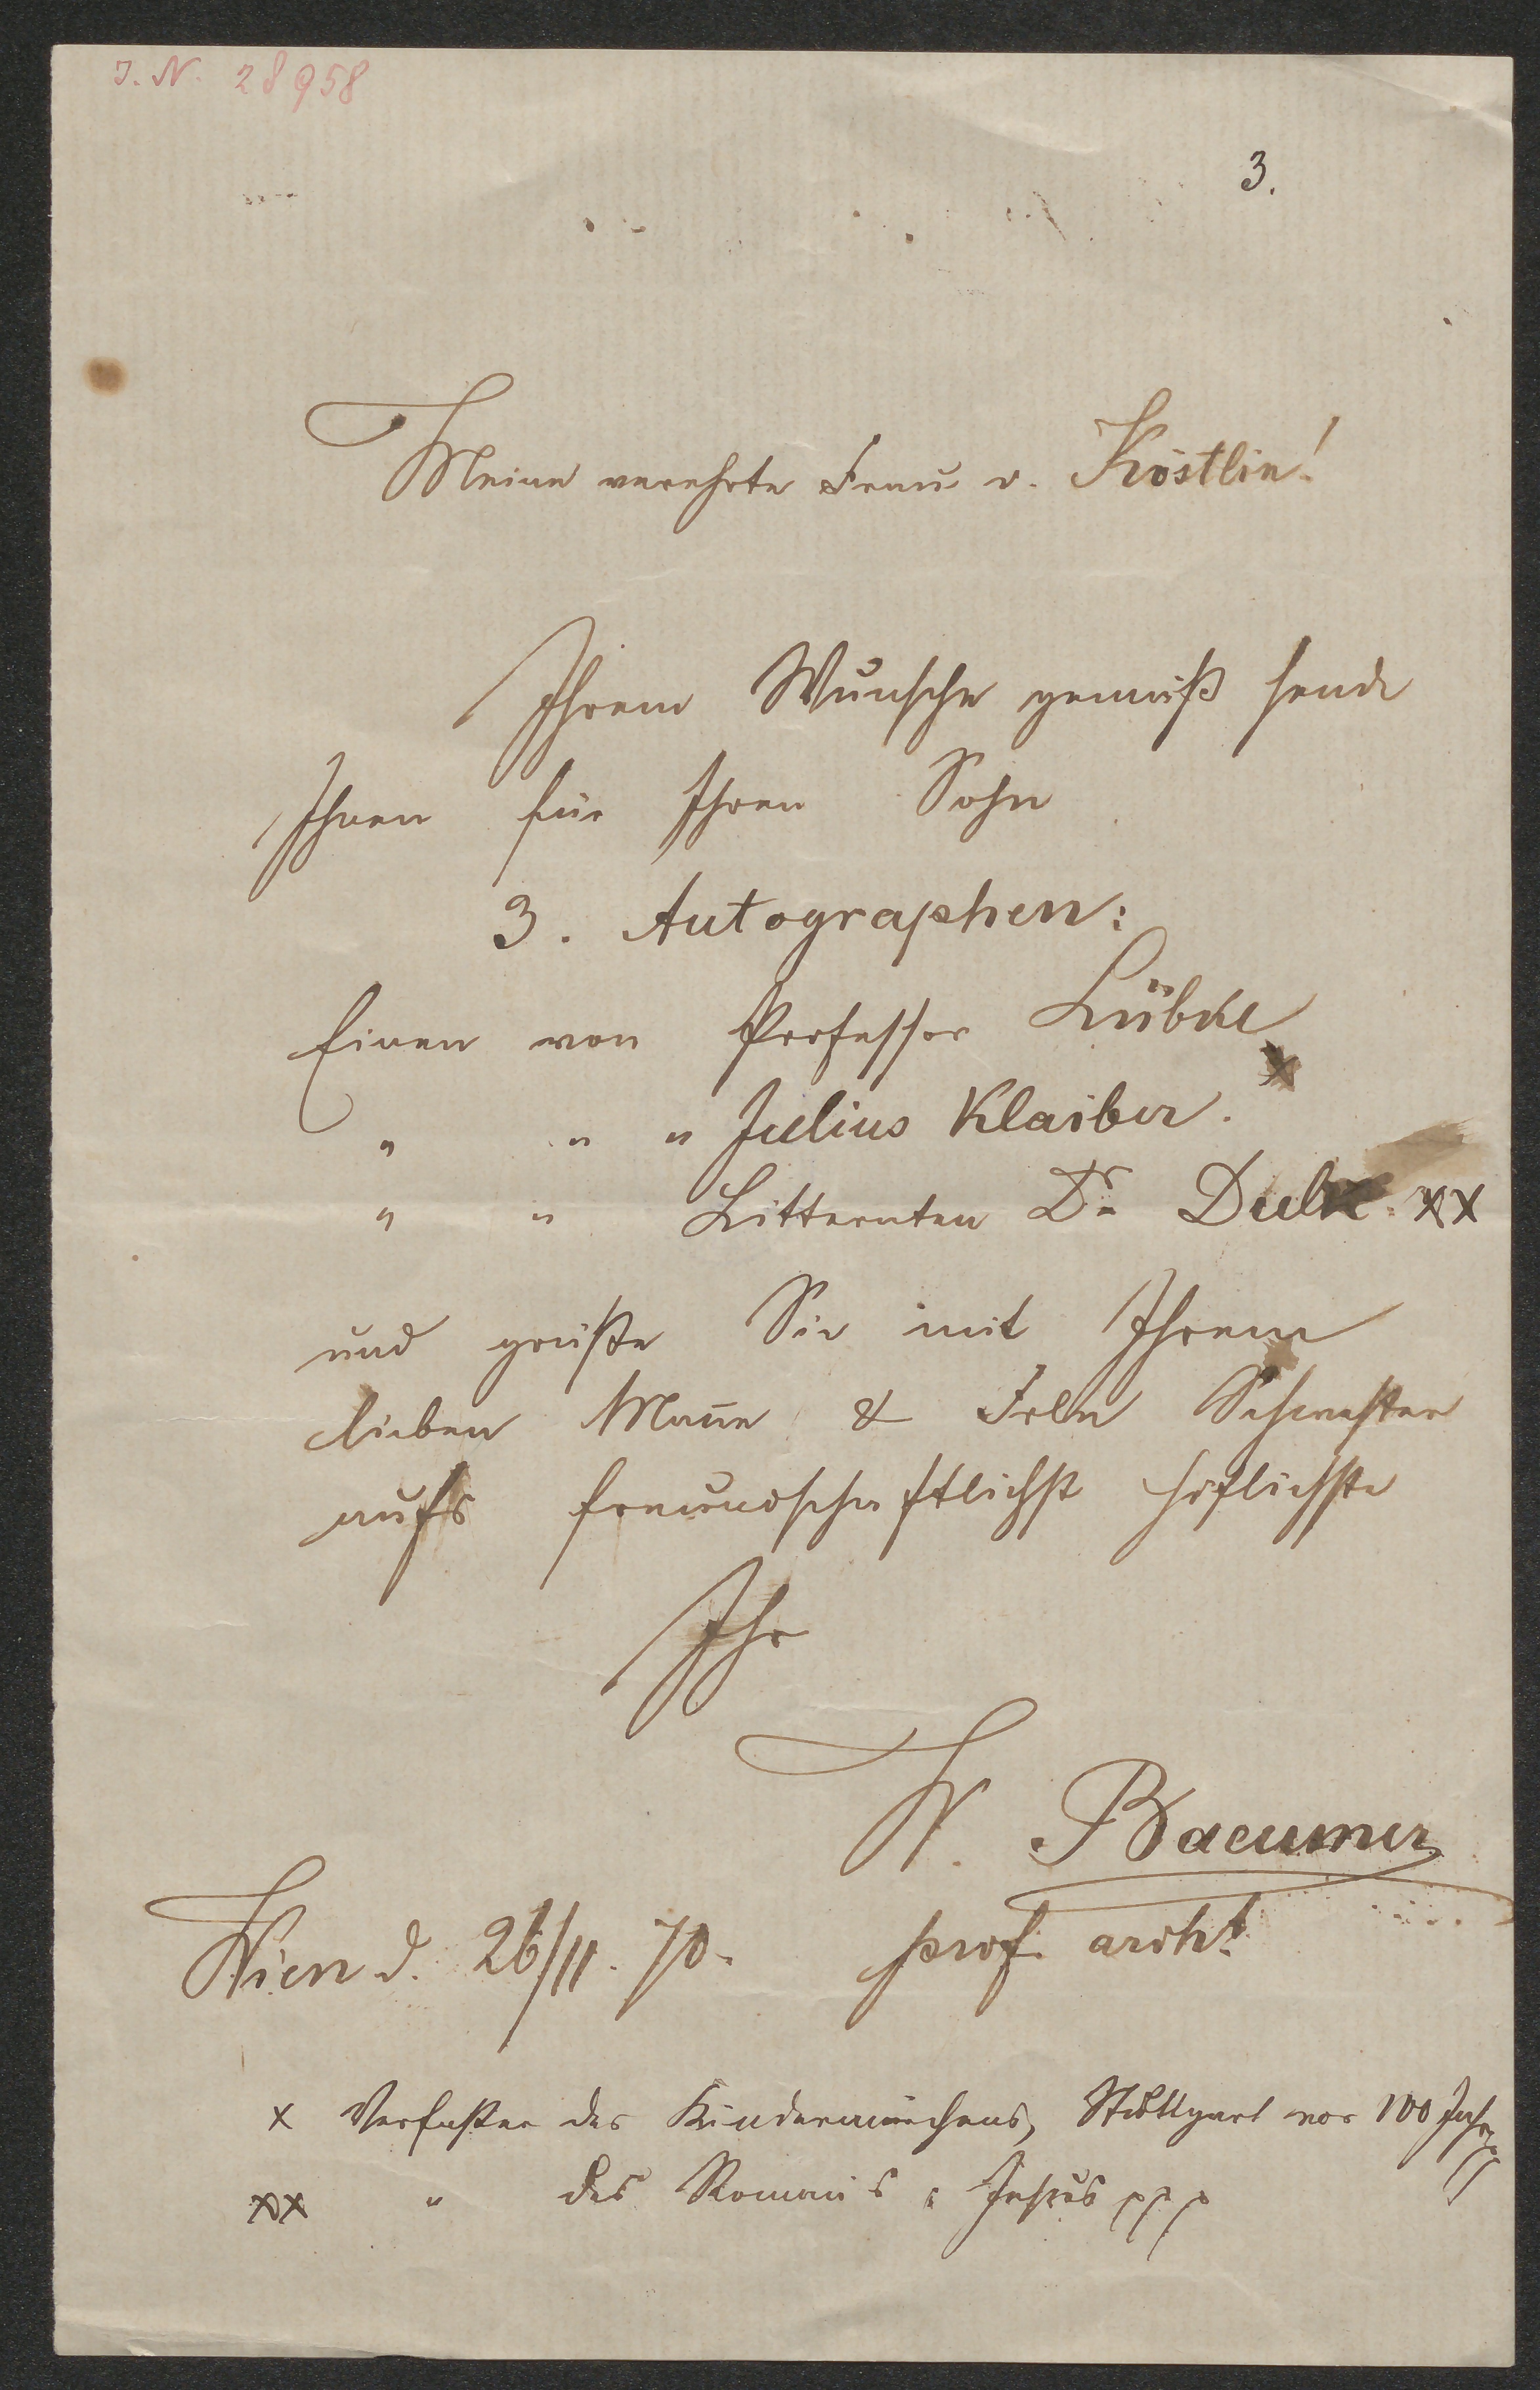 J. N. 28958
3.
Meine verehrte Frau v. Köstlin!
Ihrem Wunsche gemäß sende
Ihnen für Ihren Sohn
3. Autographen:
Einen von Professor Lübke
" " " Julius Klaiber. x
" " Litteraten Dr. Dulk. xx
und grüße Sie mit Ihrem
lieben Mann & Frln Schwester
aufs freundschaftlichst höflichste
Ihr
W. Baeumer
Wien d. 26/11. 70.
prof. archt.
x Verfaßer des Kindermärchens, Stuttgart vor 100 Jahr
xx " des Roman's : Jesus ppp